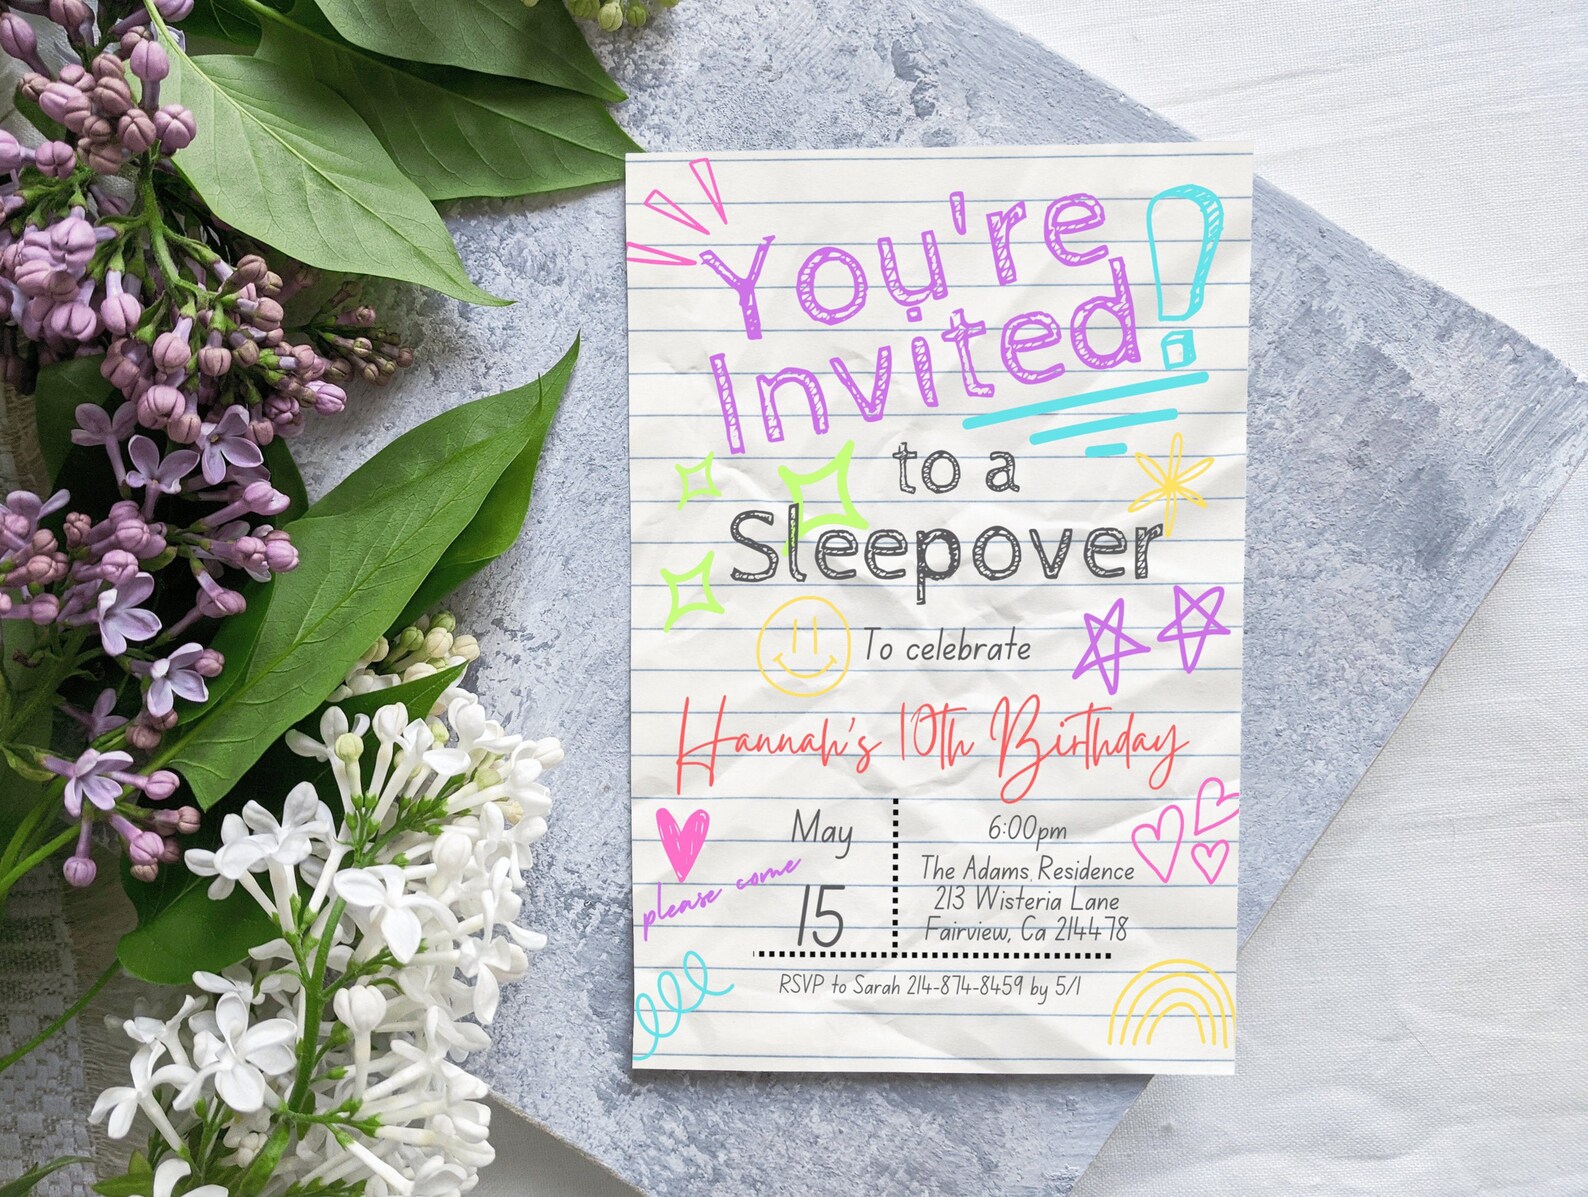 You're
Invited!
to a
Sleepover
To celebrate
Hannah's 10th Birthday
May
15
please come
6:00pm
The Adams Residence
213 Wisteria Lane
Fairview, Ca 214478
RSVP to Sarah 214-874-8459 by 5/1